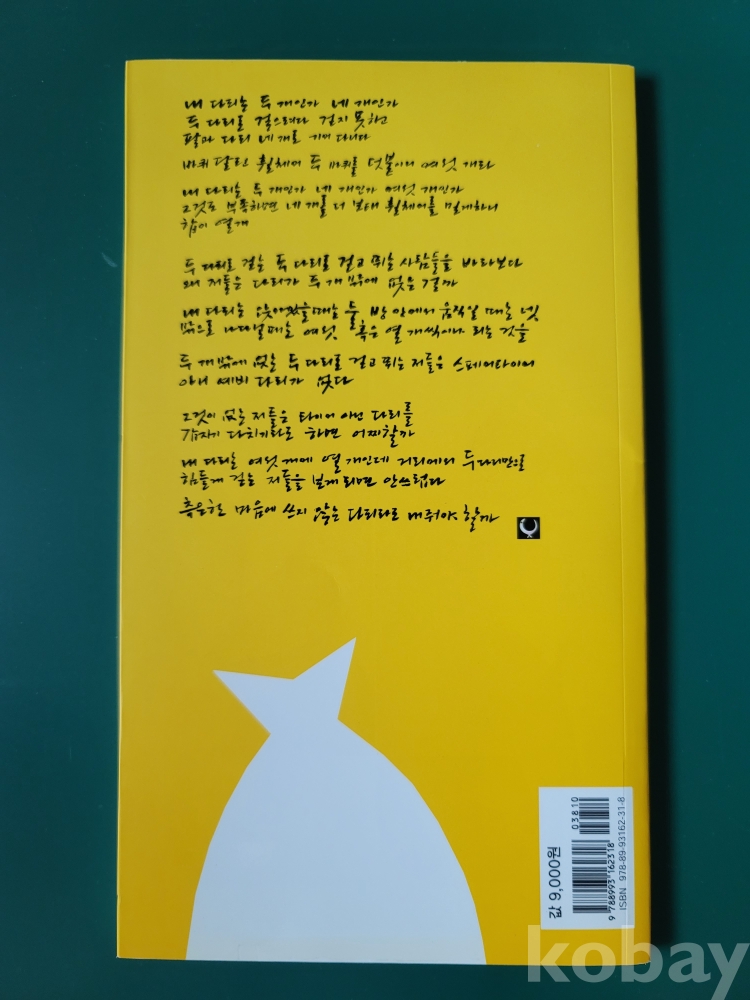 내 다리는 두 개인가 네 개인가
두 다리로 걸으려다 걷지 못하고
팔과 다리 네 개로 기어 다니다
바퀴 달린 휠체어 두 바퀴를 덧붙이니 여섯 개라
내 다리는 두 개인가 네 개인가 여섯 개인가
그것도 부족하면 네 개를 더 보태 휠체어를 밀게하니
합이 열개
두 다리로 걷는 두 다리로 걷고 뛰는 사람들을 바라보다
왜 저들은 다리가 두 개 밖에 없는 걸까
내 다리는 앉아있을때는 둘, 방 안에서 움직일 때는 넷
밖으로 나다닐때는 여섯 혹은 열 개씩이나 되는 것을
두 개 밖에 없는 두 다리로 걷고 뛰는 저들은 스페어타이어
아니 예비 다리가 없다
그것이 없는 저들은 타이어 아닌 다리를
갑자기 다치기라도 하면 어찌할까
내 다리는 여섯 개에 열 개인데 거리에서 두 다리만으로
힘들게 걷는 저들을 보게 되면 안쓰럽다
측은한 마음에 쓰지 않는 다리라도 내줘야 할까
값 9,000원
03810
9 788993 162318
ISBN 978-89-93162-31-8
kobay